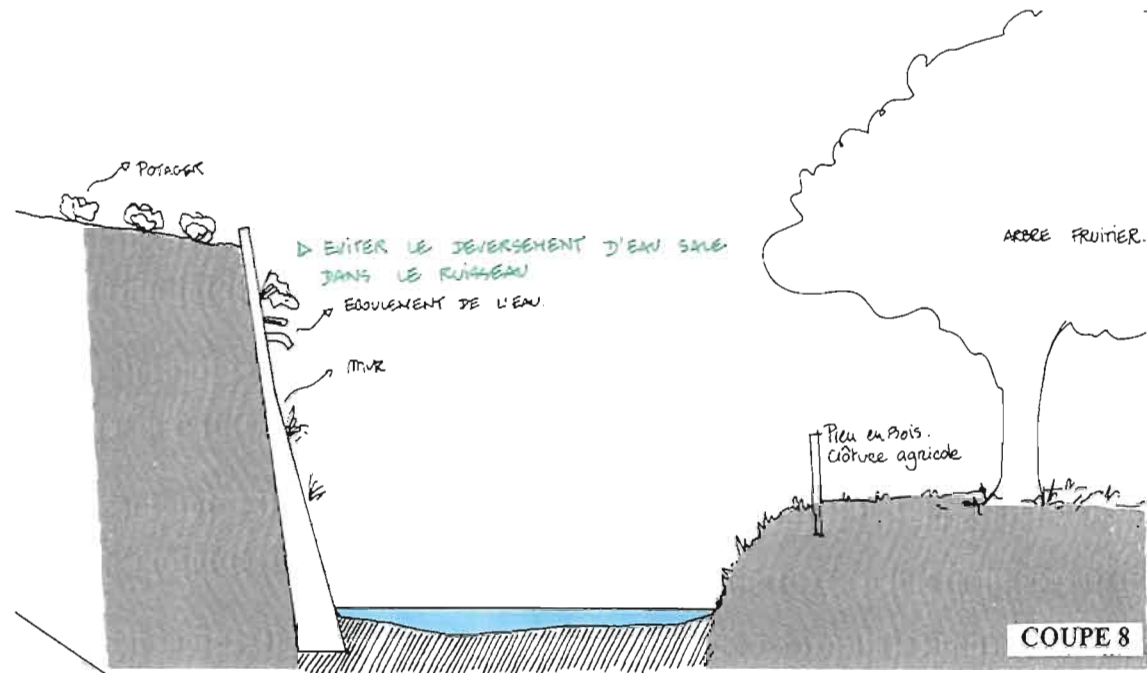 POTAGER
▷ EVITER LE DEVERSEMENT D'EAU SALE
DANS LE RUISSEAU
ECOULEMENT DE L'EAU.
MUR
ARBRE FRUITIER.
Pieu en Bois.
Clôture agricole
COUPE 8